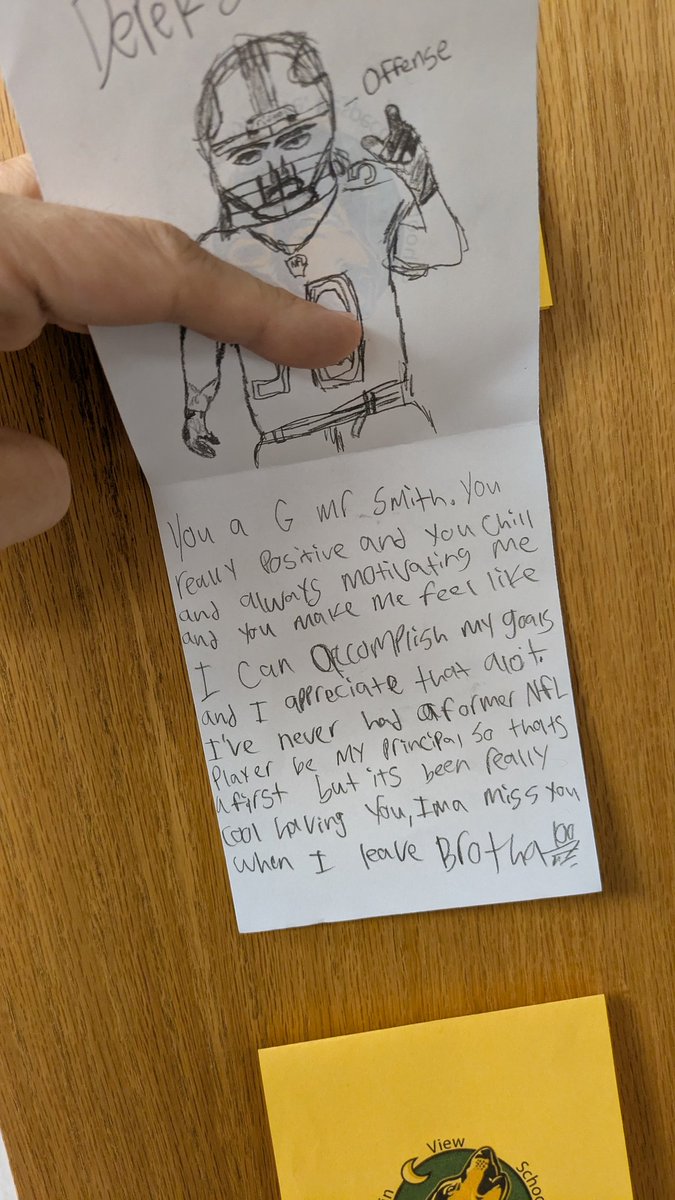 Derek S
Offense
You a G mr Smith. You
really Positive and you chill
and always motivating me
and you make me feel like
I can Accomplish my goals
and I appreciate that alot.
I've never had a former NFL
Player be my principal so thats
a first but its been really
cool having you, Ima miss you
when I leave Brotha 100
View